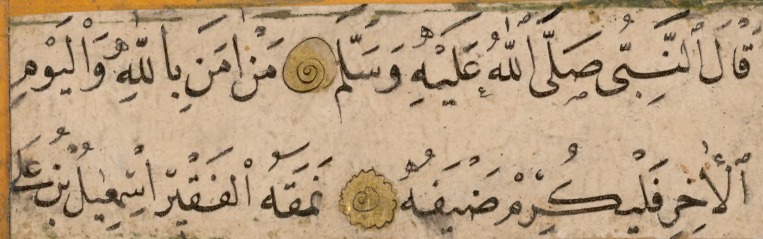 قَالَ النَّبِيُّ صَلَّى اللّٰهُ عَلَيْهِ وَسَلَّمَ مَنْ اٰمَنَ بِاللّٰهِ وَالْيَوْمِ
الْاٰخِرِ فَلْيُكْرِمْ ضَيْفَهُ نَمَقَهُ الْفَقِيرُ اسْمٰعِيلُ بْنُ عَلِي